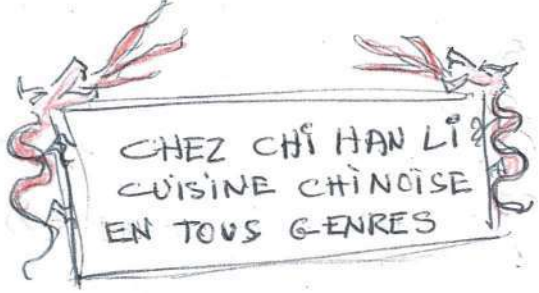 CHEZ CHI HAN LI
CUISINE CHINOISE
EN TOUS GENRES